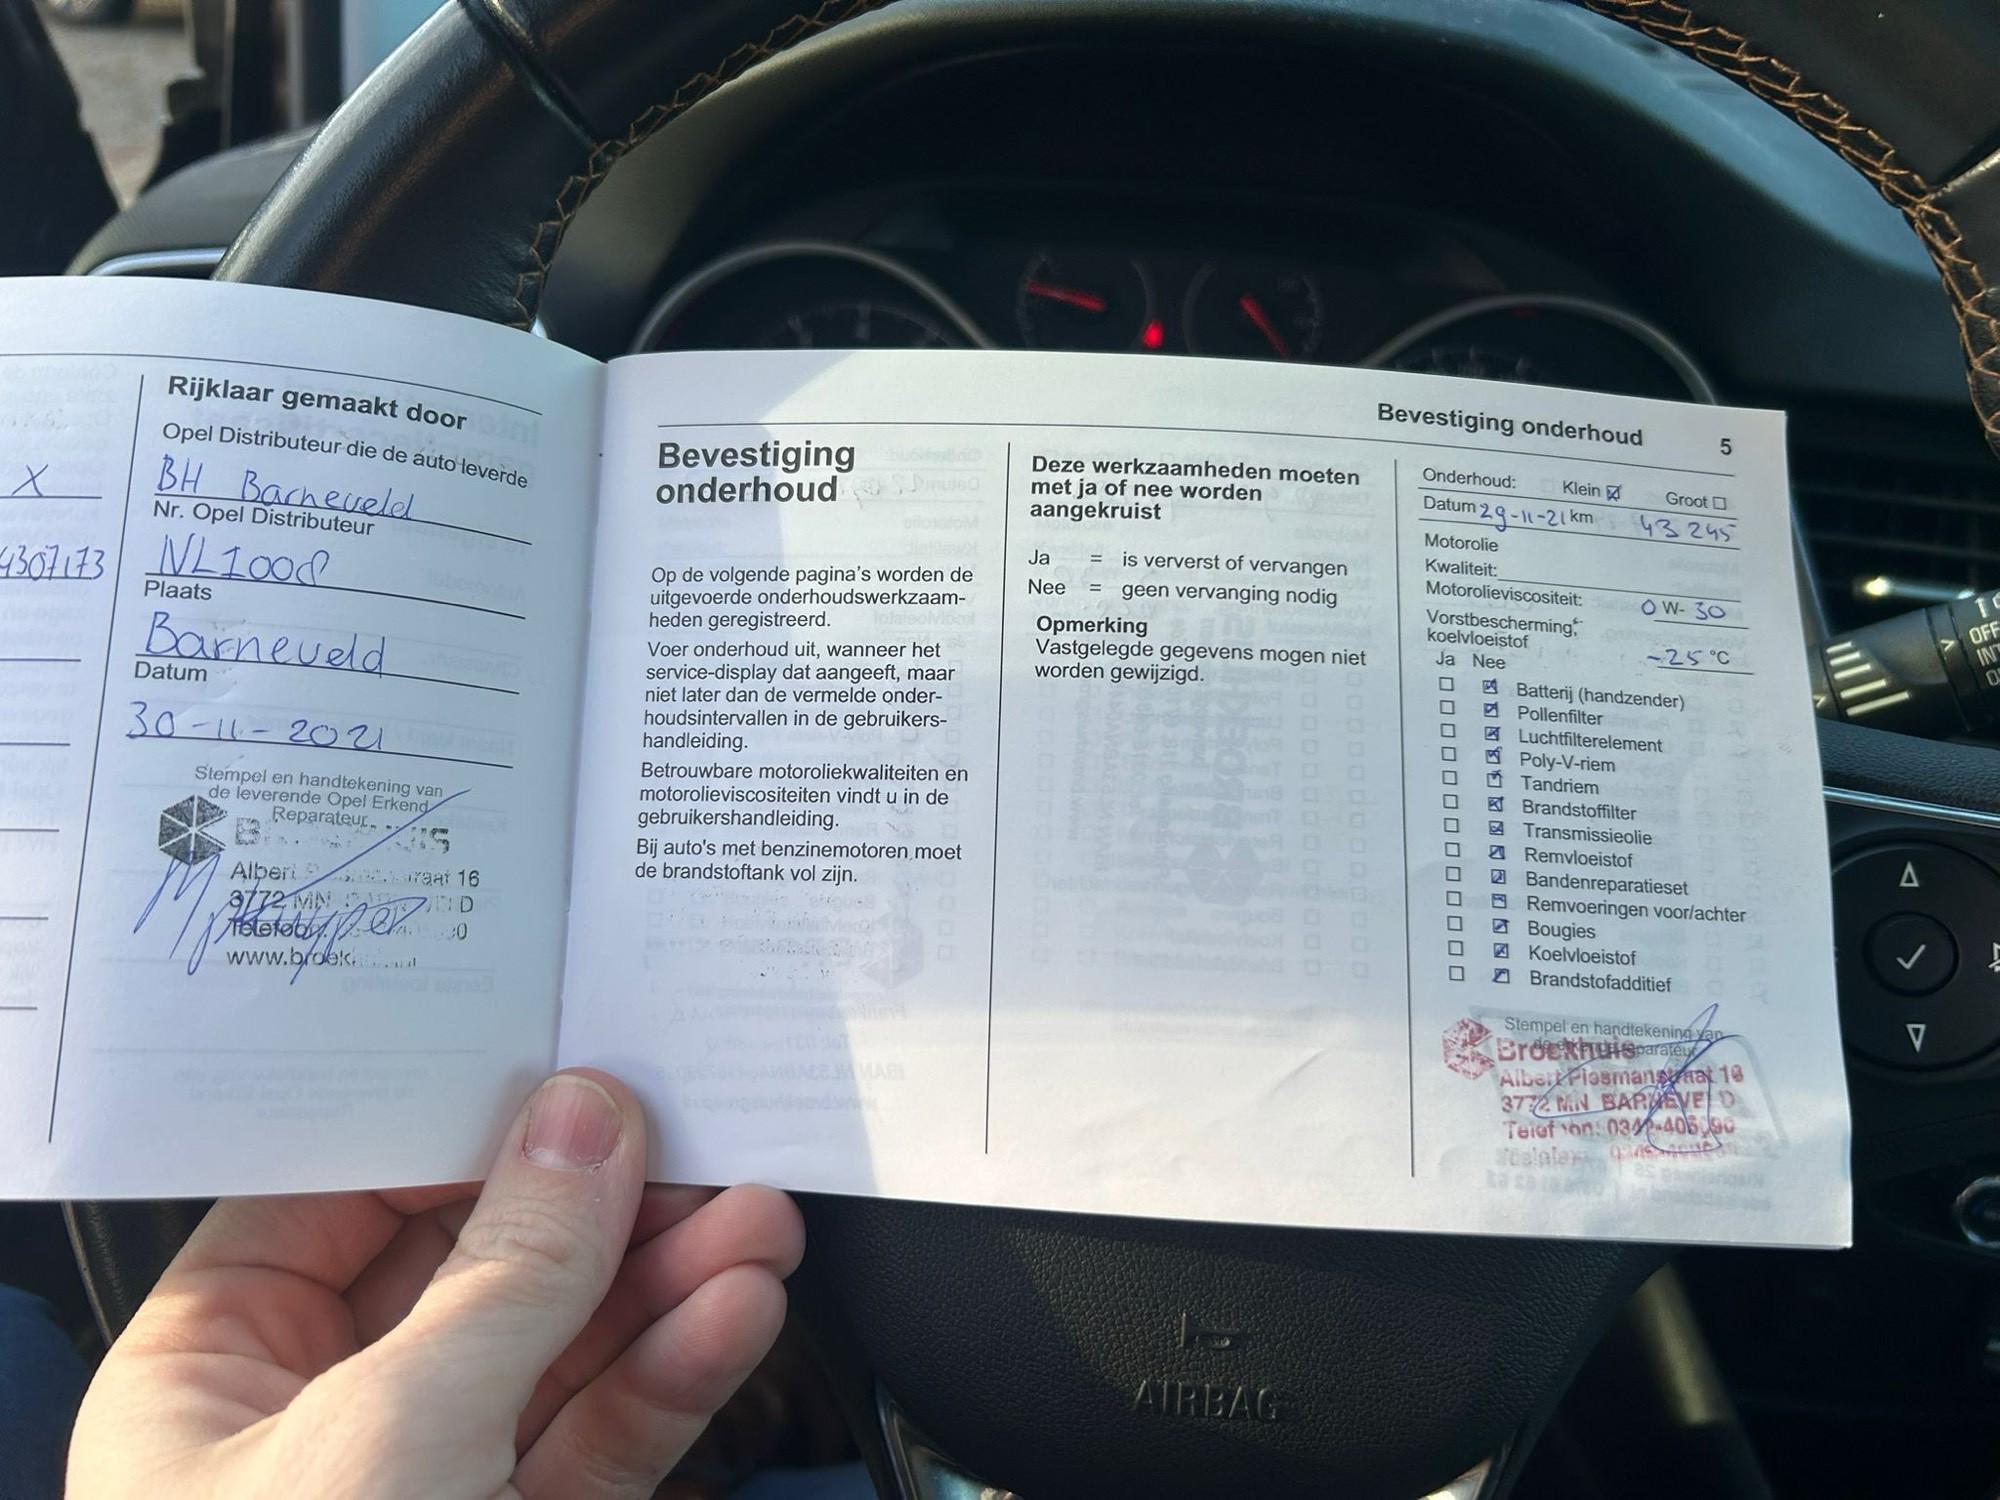 X
4307173
Rijklaar gemaakt door
Opel Distributeur die de auto leverde
BH Barneveld
Nr. Opel Distributeur
NL1008
Plaats
Barneveld
Datum
30-11-2021
Stempel en handtekening van
de leverende Opel Erkend
Reparateur
Albert 16
3772 MN
Telefoon
Bevestiging onderhoud 5
Bevestiging
onderhoud
Op de volgende pagina's worden de
uitgevoerde onderhoudswerkzaam-
heden geregistreerd.
Voer onderhoud uit, wanneer het
service-display dat aangeeft, maar
niet later dan de vermelde onder-
houdsintervallen in de gebruikers-
handleiding.
Betrouwbare motoroliekwaliteiten en
motorolieviscositeiten vindt u in de
gebruikershandleiding.
Bij auto's met benzinemotoren moet
de brandstoftank vol zijn.
Deze werkzaamheden moeten
met ja of nee worden
aangekruist
Ja = is ververst of vervangen
Nee = geen vervanging nodig
Opmerking
Vastgelegde gegevens mogen niet
worden gewijzigd.
Onderhoud: Klein Groot
Datum 29-11-21 km 43 245
Motorolie
Kwaliteit:
Motorolieviscositeit: 0 W- 30
Vorstbescherming,
koelvloeistof -25 °C
Ja Nee
Batterij (handzender)
Pollenfilter
Luchtfilterelement
Poly-V-riem
Tandriem
Brandstoffilter
Transmissieolie
Remvloeistof
Bandenreparatieset
Remvoeringen voor/achter
Bougies
Koelvloeistof
Brandstofadditief
Stempel en handtekening van
de erkende reparateur
Broekhuis
Albert Plesmanstraat 16
3772 MN BARNEVELD
Telefoon: 0342-405090
OFF
INT
AIRBAG